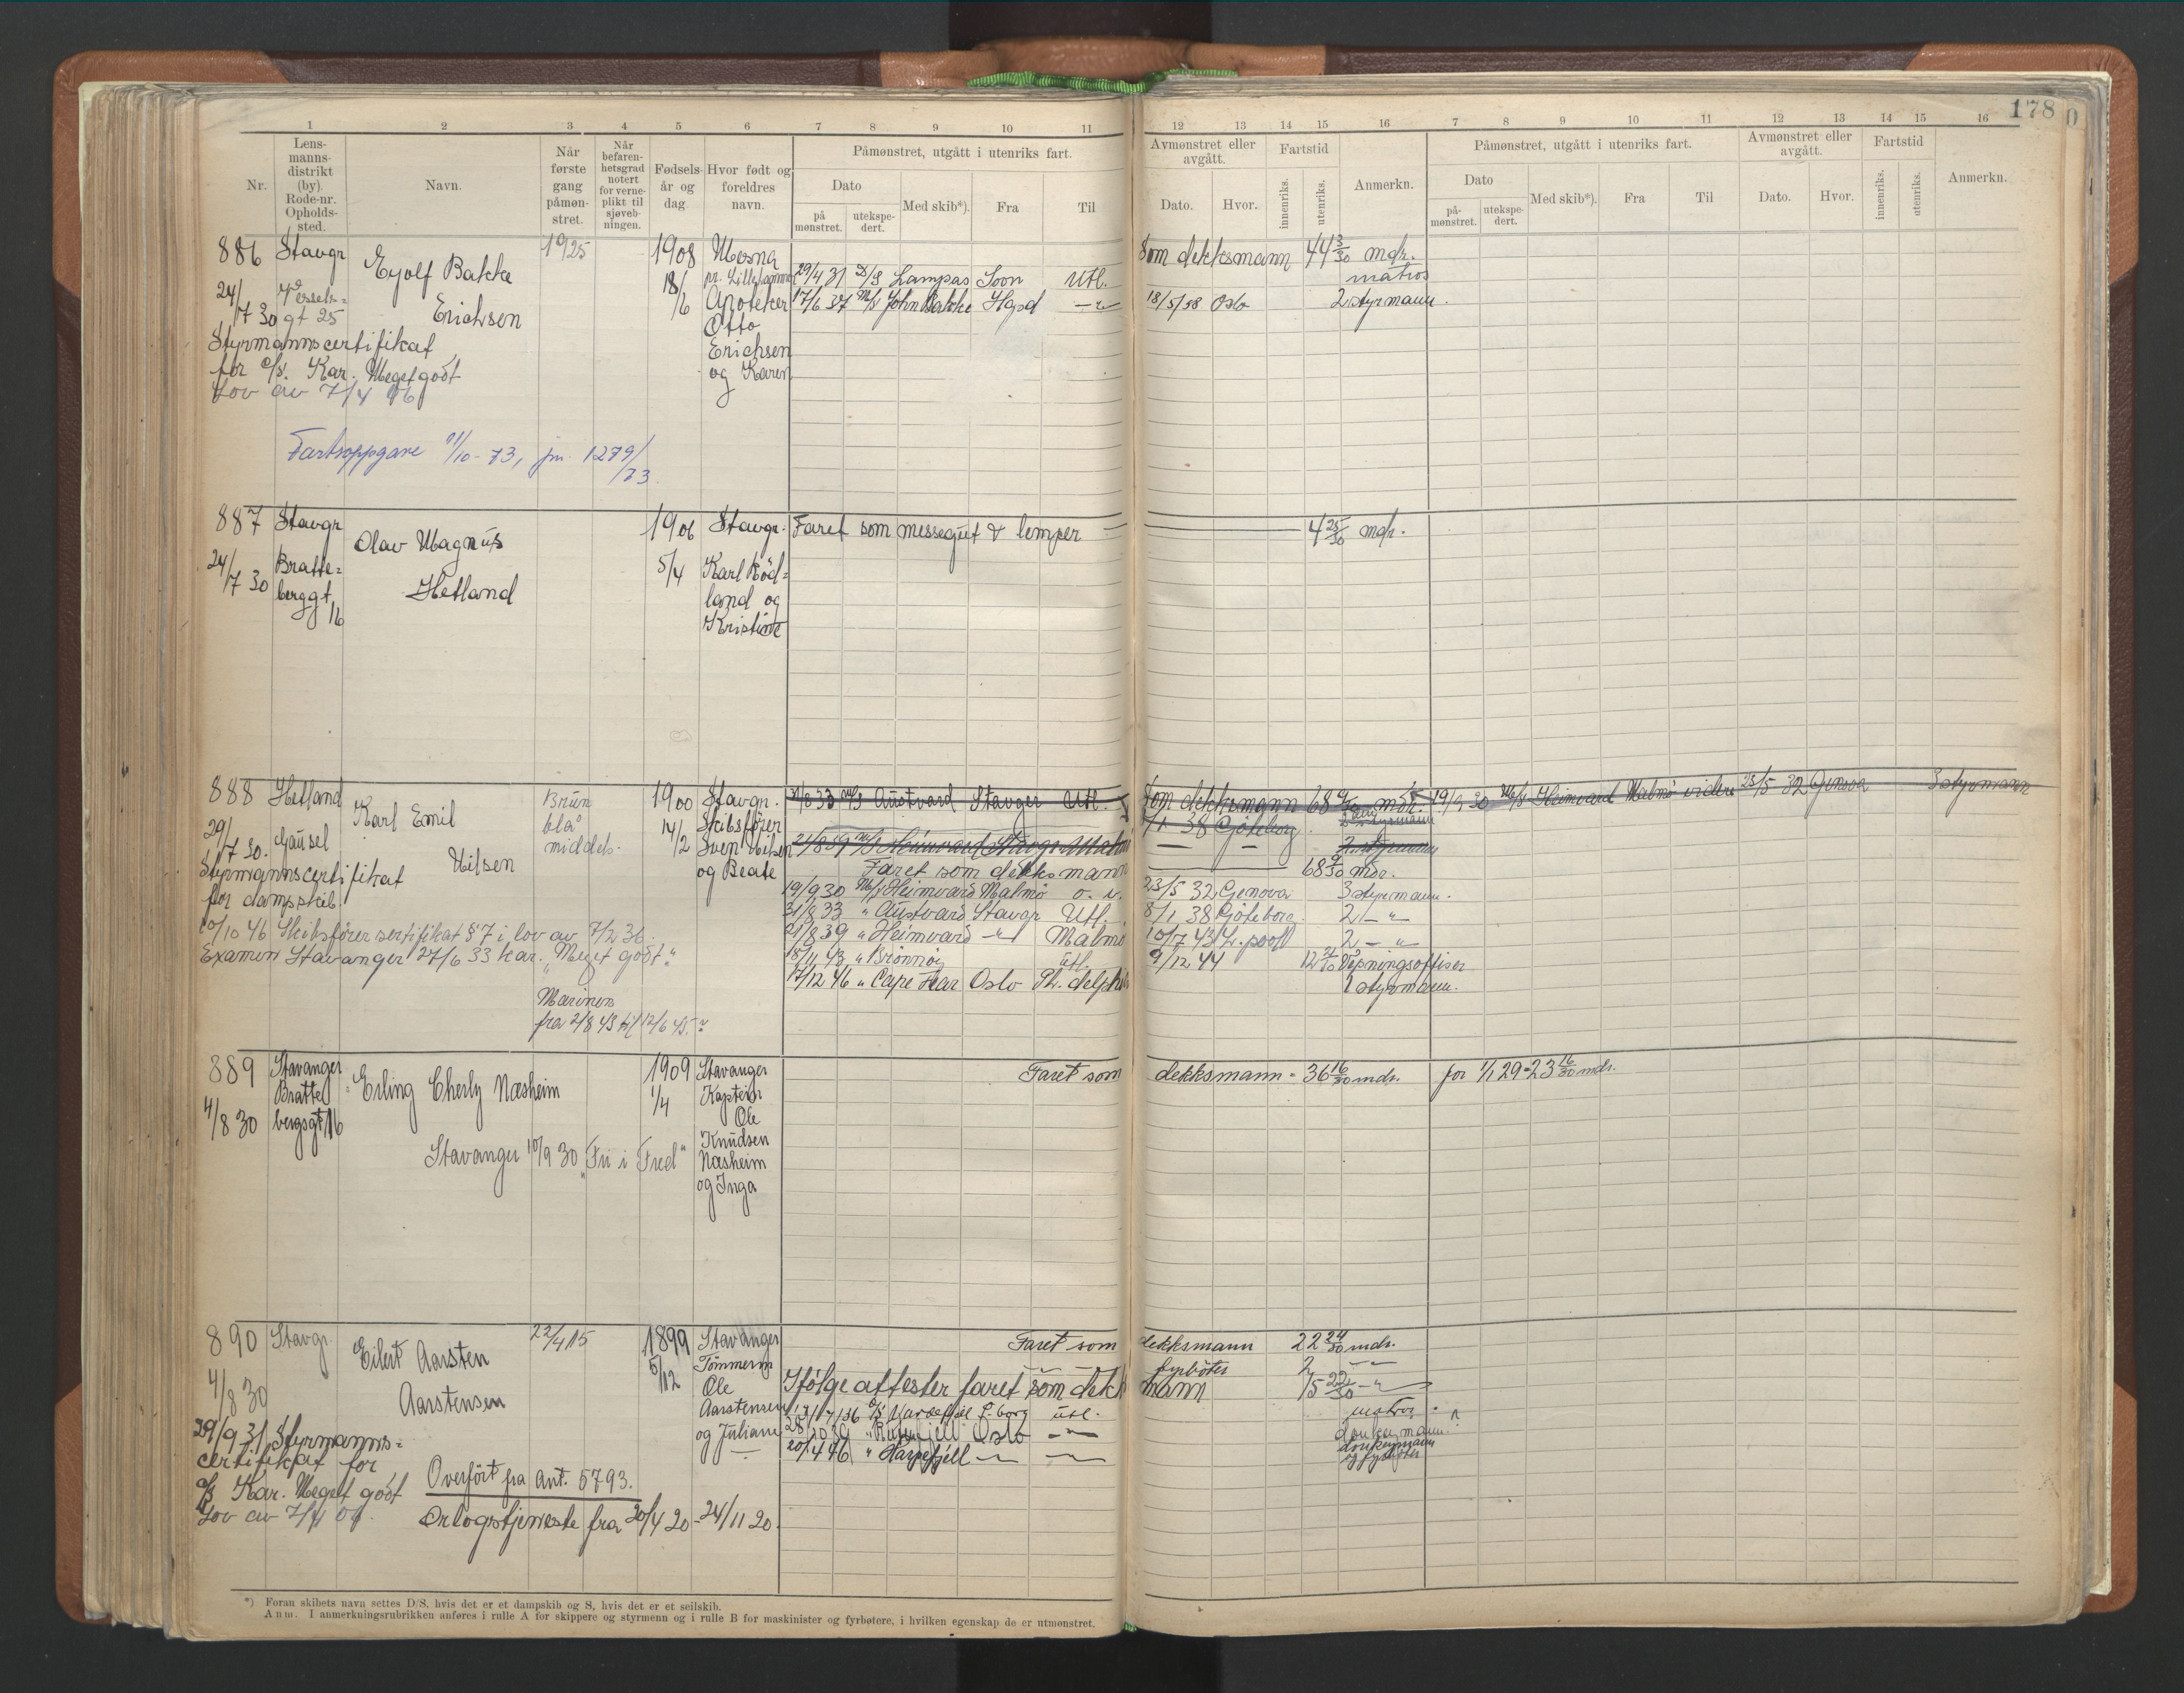 178
1 2 3 4 5 6 7 8 9 10 11 12 13 14 15 16 7 8 9 10 11 12 13 14 15 16
Nr.
Lens-
manns-
distrikt
(by).
Rode-nr.
Opholds-
sted.
Navn.
Når
første
gang
påmøn-
stret.
Når
befaren-
hetsgrad
notert
for verne-
plikt til
sjøveb-
ningen.
Fødsels-
år og
dag.
Hvor født og
foreldres
navn.
Påmønstret, utgått i utenriks fart.
Dato
på
mønstret.
utekspe-
dert.
Med skib*).
Fra
Til
Avmønstret eller
avgått.
Dato.
Hvor.
Fartstid
innenriks.
utenriks.
Anmerkn.
Påmønstret, utgått i utenriks fart.
Dato
på-
mønstret.
utekspe-
dert.
Med skib*).
Fra
Til
Avmønstret eller
avgått.
Dato.
Hvor.
Fartstid
innenriks.
utenriks.
Anmerkn.
886 Stavgr 1925 1908 Mesna Som dekksmann 44 3/30 mdr.
Eyolf Bakke
24/7 30 Vessels=
gt 25
Erichsen
18/6 pr. Lillehammer
Apoteker
Otto
Erichsen
og Karen
29/4 31 D/S Lampas Soon Utl. matros
17/6 37 M/S John Bakke Hgsd 18/5/38 Oslo 2 styrmann.
Styrmannscertifikat
for D/S. Kar. Meget godt
Lov av 7/4 06
Fartsoppgave 11/10-73, jnr. 1279/73
887 Stavgr 1906 Stavgr. Faret som messegut & lemper 4 25/30 mdr.
Olav Magnus
24/7 30 Bratte=
berggt.
16
Hetland
5/4 Karl Röd=
land og
Kristine
888 Hetland Brun 1900 Stavgr. 31/8 33 M/S Austvard Stavger Utl. Som dekksmann 68 9/30 mdr. 19/9 30 M/S Heimvard Malmö videre 23/5 32 Genova 3 styrmann
Karl Emil blå
29/7 30. Gausel middels.
Nilsen
14/2 Skibsfører
Sven Nilsen
og Beate
8/1 38 Göteborg 2 styrmann
21/8 39 M/S Heimvard Stavgr Malmö 2 styrmann
Styrmannscertifikat
for dampskib.
Faret som dekksmann 68 9/30 mdr.
19/9 30 M/S Heimvard Malmö o. v. 23/5 32 Genova 3 styrmann.
31/8 33 " Austvard Stavgr Utl. 8/1 38 Göteborg. 2 — "
21/8 39 " Heimvard — " Malmö 10/7 43 L.pooll 2 — "
18/11 43 " Brønnøy utl. 9/12 44 12 21/30 Våpningsoffiser
17/12 46 " Cape Har Oslo Ph. delphia 1 styrmann.
10/10 46 Skibsfører sertifikat § 7 i lov av 7/2 36.
Examen Stavanger 27/6 33 kar. "Meget godt"
Marinen
fra 2/8 43 til 12/6 45.
889 Stavanger 1909 Stavanger Faret som dekksmann = 36 16/30 mdr. for 1/1 29 = 23 16/30 mdr.
Bratte=
bergsgt 16
4/8 30
Erling Cherly Næsheim
1/4 Kaptein
Ole
Knudsen
Næsheim
og Inga
Stavanger 10/9 30 "Fri i Fred"
890 Stavgr. 22/4 15 1899 Stavanger Faret som dekksmann 22 24/30 mdr.
Eilert Aarsten
4/8 30 Aarstensen
5/12 Tömmerm
Ole
Aarstensen
og Juliane
fyrböter 2 — "
Ifölge attester faret som dekkmann 15 22/30 — "
utl. matros.
28/10 39 Oslo donkeymann
20/4 46 " Harpefjell donkeymann
og fyrböter
29/9 31 Styrmanns=
certifikat for
D/S Kar. Meget godt
Lov av 7/4 06.
Overfört fra Ant. 5793.
Orlogstjeneste fra 20/4 20 - 24/11 20
*) Foran skibets navn settes D/S, hvis det er et dampskib og S, hvis det er et seilskib.
Anm. I anmerkningsrubrikken anføres i rulle A for skippere og styrmenn og i rulle B for maskinister og fyrbøtere, i hvilken egenskap de er utmønstret.